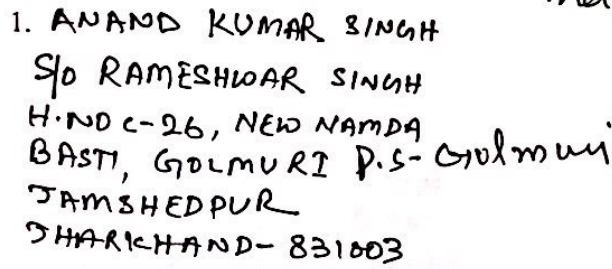 1. ANAND KUMAR SINGH
S/O RAMESHWAR SINGH
H.NO C-26, NEW NAMDA
BASTI, GOLMURI P.S- Golmuri
JAMSHEDPUR
JHARKHAND- 831003